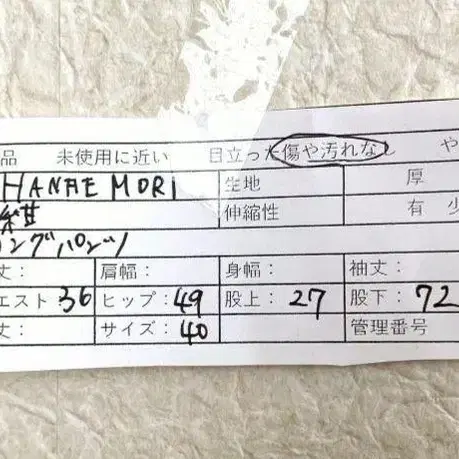 品 未使用に近い 目立った傷や汚れなし や
HANAE MORI 生地 厚
紺 伸縮性 有 少
ロングパンツ
丈： 肩幅： 身幅： 袖丈：
エスト 36 ヒップ：49 股上：27 股下：72
丈： サイズ：40 管理番号